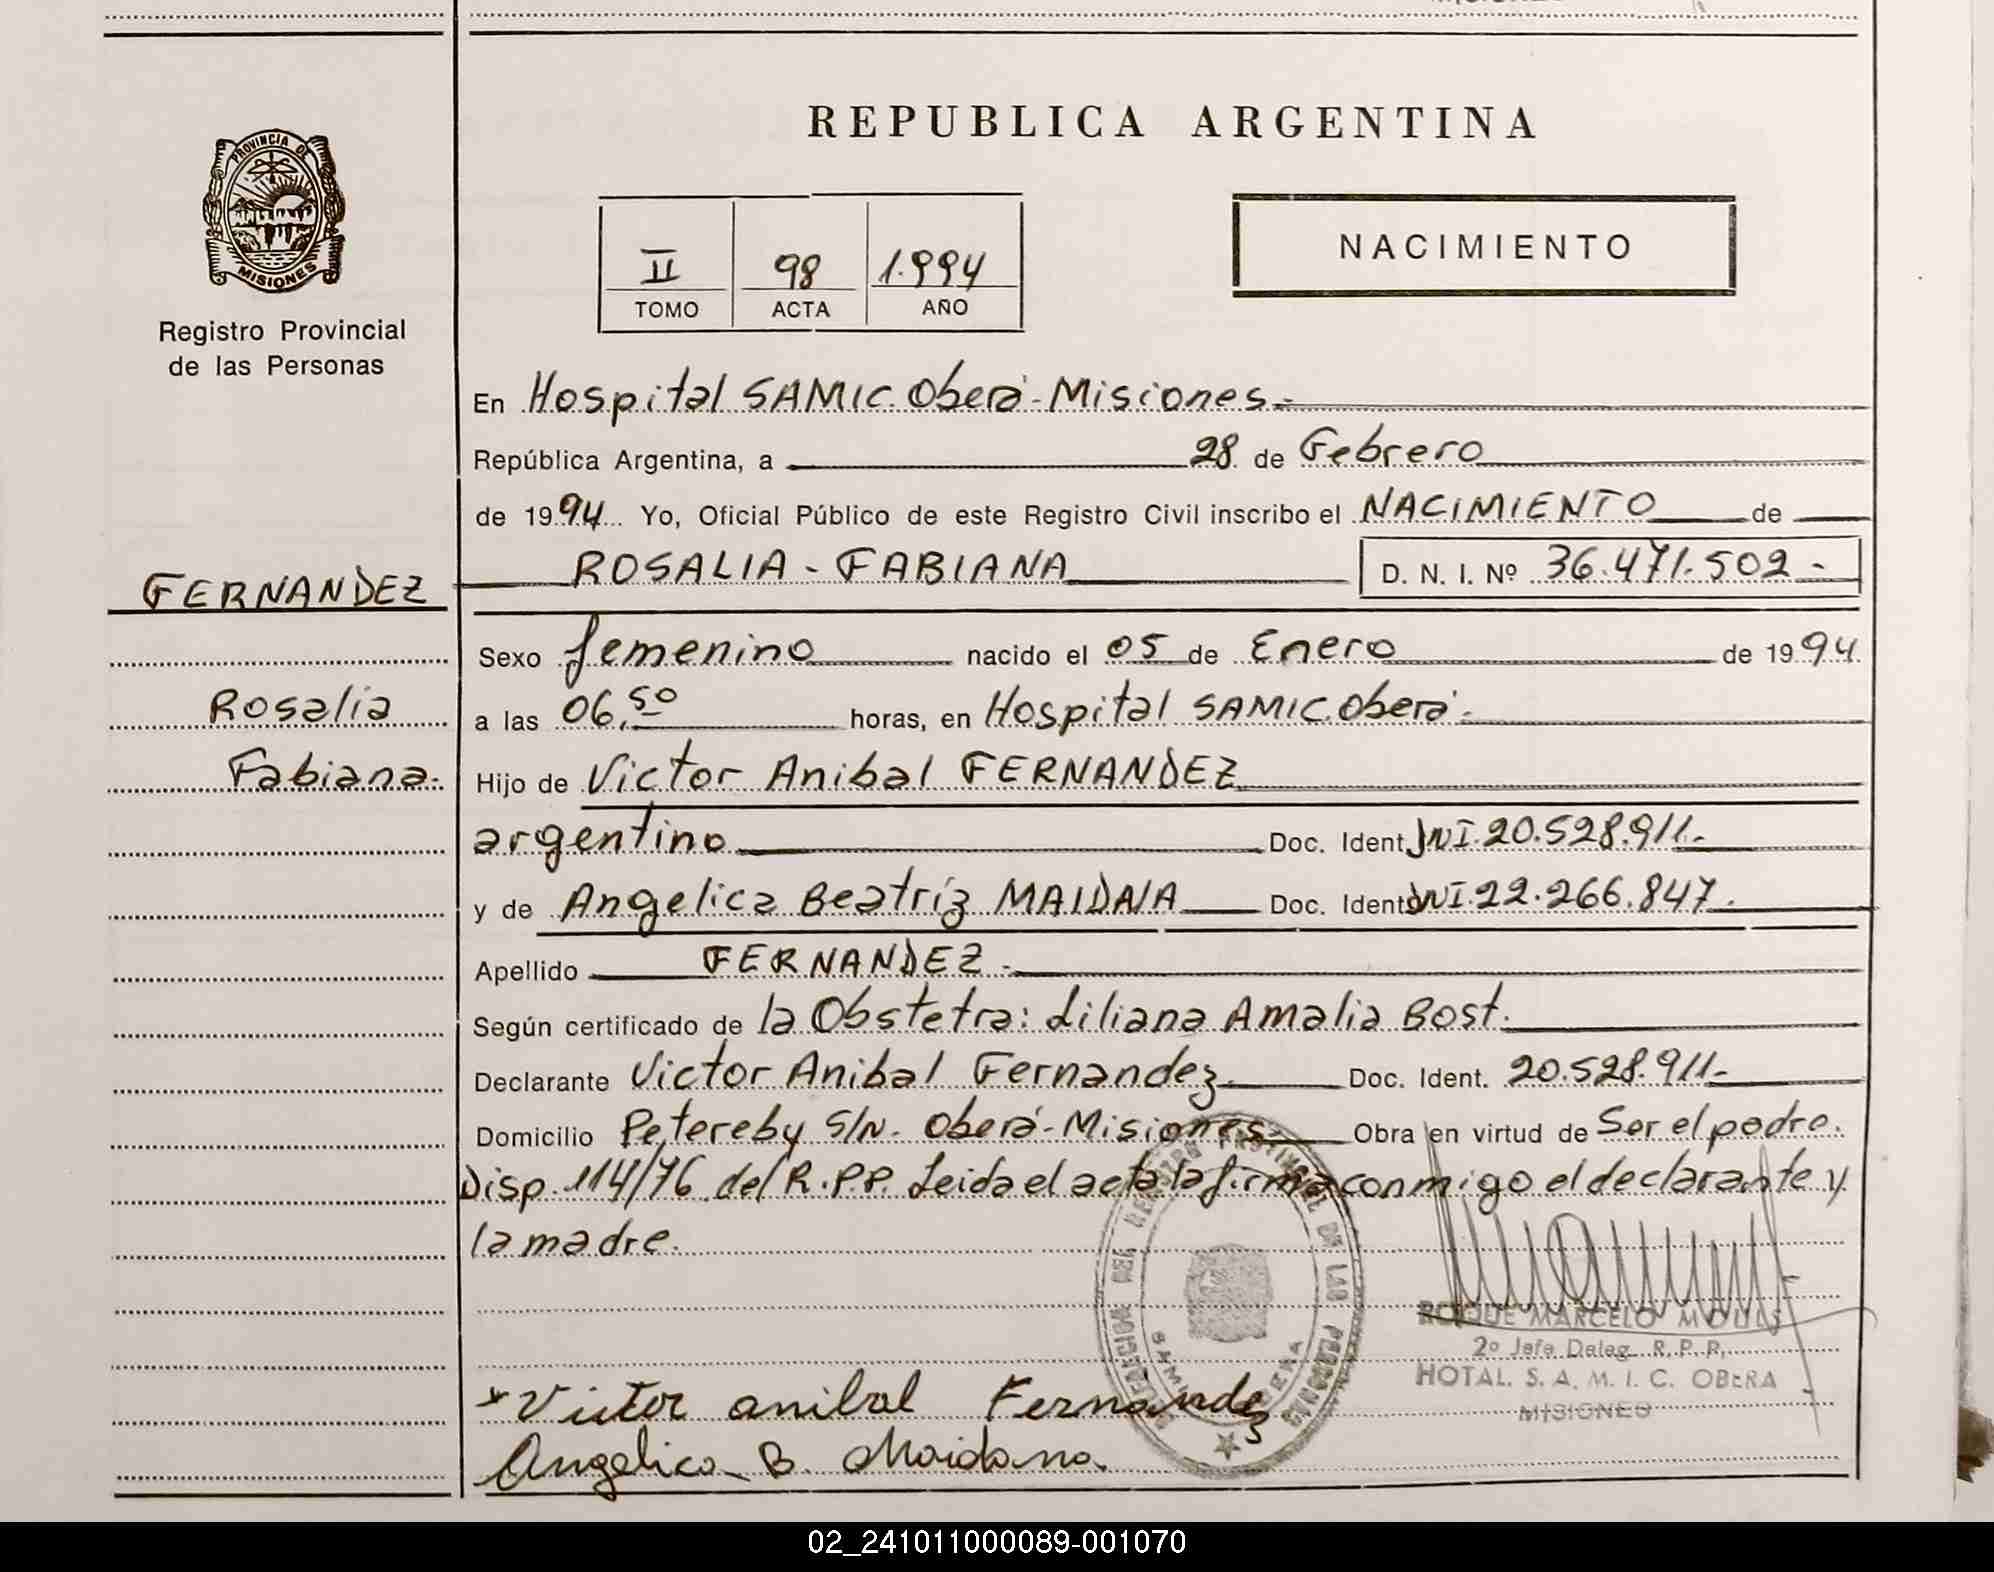 REPUBLICA ARGENTINA
PROVINCIA DE
MISIONES
Registro Provincial
de las Personas
II 98 1.994
TOMO ACTA AÑO
NACIMIENTO
En Hospital SAMIC. Oberá - Misiones.-
República Argentina, a 28 de Febrero
de 1994 Yo, Oficial Público de este Registro Civil inscribo el NACIMIENTO de
FERNANDEZ ROSALIA - FABIANA D. N. I. Nº 36.471.502 -
Sexo femenino nacido el 05 de Enero de 1994.
Rosalia a las 06,50 horas, en Hospital SAMIC. Oberá.-
Fabiana. Hijo de Victor Anibal FERNANDEZ
argentino Doc. Ident. DNI. 20.528.911.-
y de Angelica Beatríz MAIDANA Doc. Ident. DNI. 22.266.847.
Apellido FERNANDEZ.-
Según certificado de la Obstetra: Liliana Amalia Bost.
Declarante Victor Anibal Fernandez Doc. Ident. 20.528.911.-
Domicilio Petereby S/N. Oberá - Misiones Obra en virtud de Ser el padre.
Disp. 114/76 del R.P.P. Leida el acta la firma conmigo el declarante y
la madre.
ROQUE MARCELO
2º Jefe Deleg. R. P. P.
HOTAL. S. A. M. I. C. OBERA
MISIONES
Victor anibal Fernandez
Angelica B. Maidana.
02_241011000089-001070